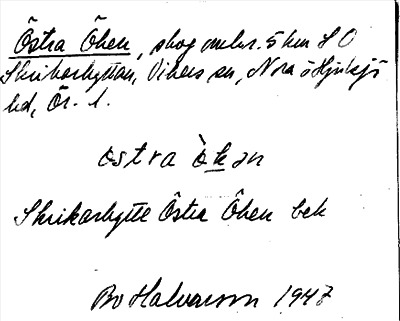 Östra Öken, skog omkr. 5 km S O
Skrikarhyttan, Vikers sn, Nora o Hjulsjö
hd, Ör. l.
östra ò̀kən
Skrikarhytte Östra Öken bek
Bo Halvarson 1947